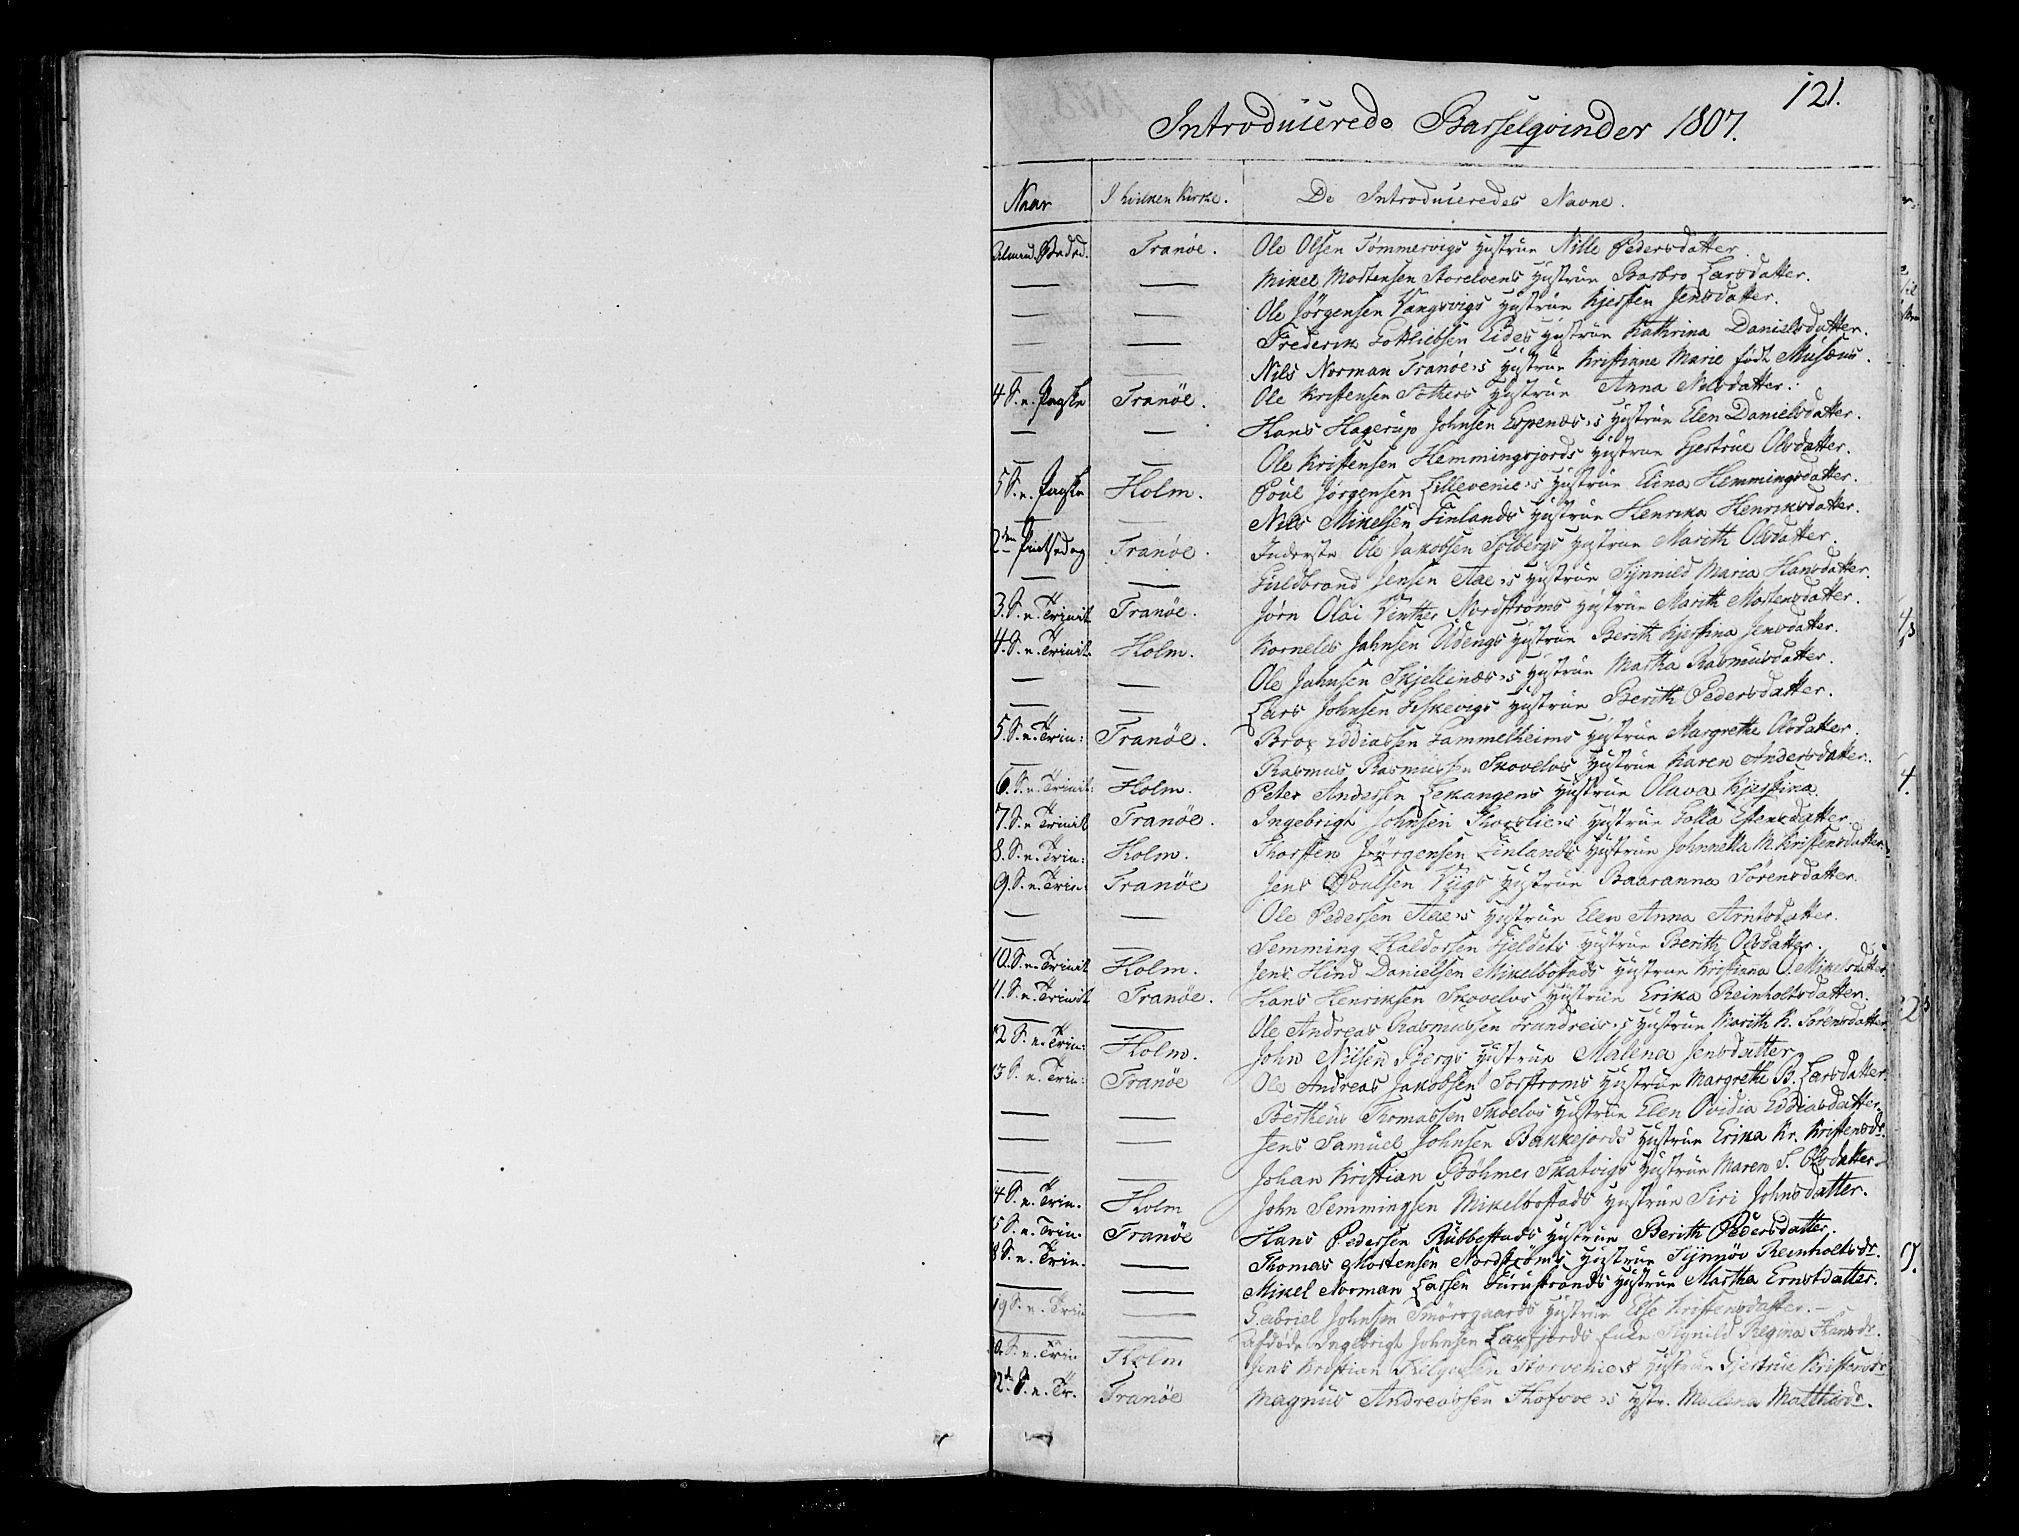 121.
Introducerede Barselqvinder 1807.
Naar I hvilken Kirke. De Introduceredes Navne.
Almind. Bededag Tranöe. Ole Olsen Tömmervigs Hustrue Nille Pedersdatter.
— — Mikel Mortensen Storelvens Hustrue Barbro Larsdatter.
— — Ole Jörgensen Vangsvigs Hustrue Kjersten Jensdatter.
— — Frederik Gottliebsen Eides Hustrue Kathrina Danielsdatter.
— — Nils Norman Tranöe's Hustrue Kristiane Marie födt Musæus.
4 S. e. Paaske Tranöe. Ole Kristensen Hustrue Anna Nilsdatter.
— — Hans Hagerup Johnsen Espenæs's Hustrue Elen Danielsdatter.
— — Ole Kristensen Hemmingsjords Hustrue Gjertrue Olsdatter.
5 S. e. Paaske Holm. Poul Jörgensen Lillevenie's Hustrue Elina Hemmingsdatter.
— — Nils Mikelsen Finlands Hustrue Henrika Henriksdatter.
2den Pintsedag Tranöe. Inderste Ole Jakobsen Solbergs Hustrue Marith Olsdatter.
— — Guldbrand Jensen Aae's Hustrue Synnild Maria Hansdatter.
3. S. e. Trinit Tranöe. Jörn Olai Vinther Nordströms Hustrue Marith Mortensdatter.
4. S. e. Trinit. Holm. Kornelis Jahnsen Udengs Hustrue Berith Kjerstina Jensdatter.
— — Ole Jahnsen Skjellenæs's Hustrue Martha Rasmusdatter.
— — Lars Johnsen Giskevigs Hustrue Berith Pedersdatter.
5. S. e. Trin: Tranöe. Brox Eddiassen Gammelheims Hustrue Margrethe Olsdatter.
— — Rasmus Rasmussen Skovelvs Hustrue Karen Andersdatter.
6. S. e. Trinit: Holm. Peter Andersen Lekangens Hustrue Olava Kjerstina.
7. S. e. Trinit Tranöe. Ingebrigt Johnsen Hustrue Golla Estensdatter.
8. S. e. Trin: Holm. Thorsten Jörgensen Finlands Hustrue Johnnetta M. Kristensdatter.
9. S. e. Trin: Tranöe Jens Poulsen Vigs Hustrue Baaranna Sörensdatter.
— — Ole Pedersen Aae's Hustrue Elen Anna Arntsdatter.
— — Semming Haldorsen Gjeldets Hustrue Berith Olsdatter.
10. S. e. Trinit Holm. Jens Hind Danielsen Mikelbostads Hustrue Kristianna O. Mikelsdatter.
11. S. e. Trinit Tranöe. Hans Henriksen Skovelvs Hustrue Erika Reinholtsdatter.
— — Ole Andreas Rasmussen Grundreis's Hustrue Marith K. Sörensdatter.
12 S. e. Trin: Holm. John Nilsen Bergs Hustrue Malena Jensdatter
13 S. e. Trin: Tranöe Ole Andreas Jakobsen Sorstroms Hustrue Margrethe B. Larsdatter.
— — Bertheus Thomassen Skoelvs Hustrue Elen Ovidia Eddiasdatter.
— — Jens Samuel Johnsen Bakkejords Hustrue Erika Kr. Kristensdr.
— — Johan Kristian Böhmer Skatvigs Hustrue Maren S. Olsdatter.
14 S. e. Trin. Holm John Semmingsen Mikelbostads Hustrue Siri Johnsdatter.
15 S. e. Trin. Tranöe Hans Pedersen Rubbestads Hustrue Berith Pedersdatter.
18 S. e. Trin. — Thomas Mortensen Nordströms Hustrue Synnöv Reinholtsdr.
— — Mikel Norman Larsen Furustrands Hustrue Martha Ernstdatter.
19 S. e. Trin — Gabriel Johnsen Smörsgaards Hustrue Else Kristensdatter. —
— — Afdöde Ingebrigt Johnsen Laxfjords Enke Signild Regina Hansdr.
20. S. e. Trin Holm Jens Kristian Storvenie's Hustrue Gjertrue Kristensdr
S. e. Tr. Tranöe Magnus Andreassen Hofsöe's Hustr. Malena Matthisdr.